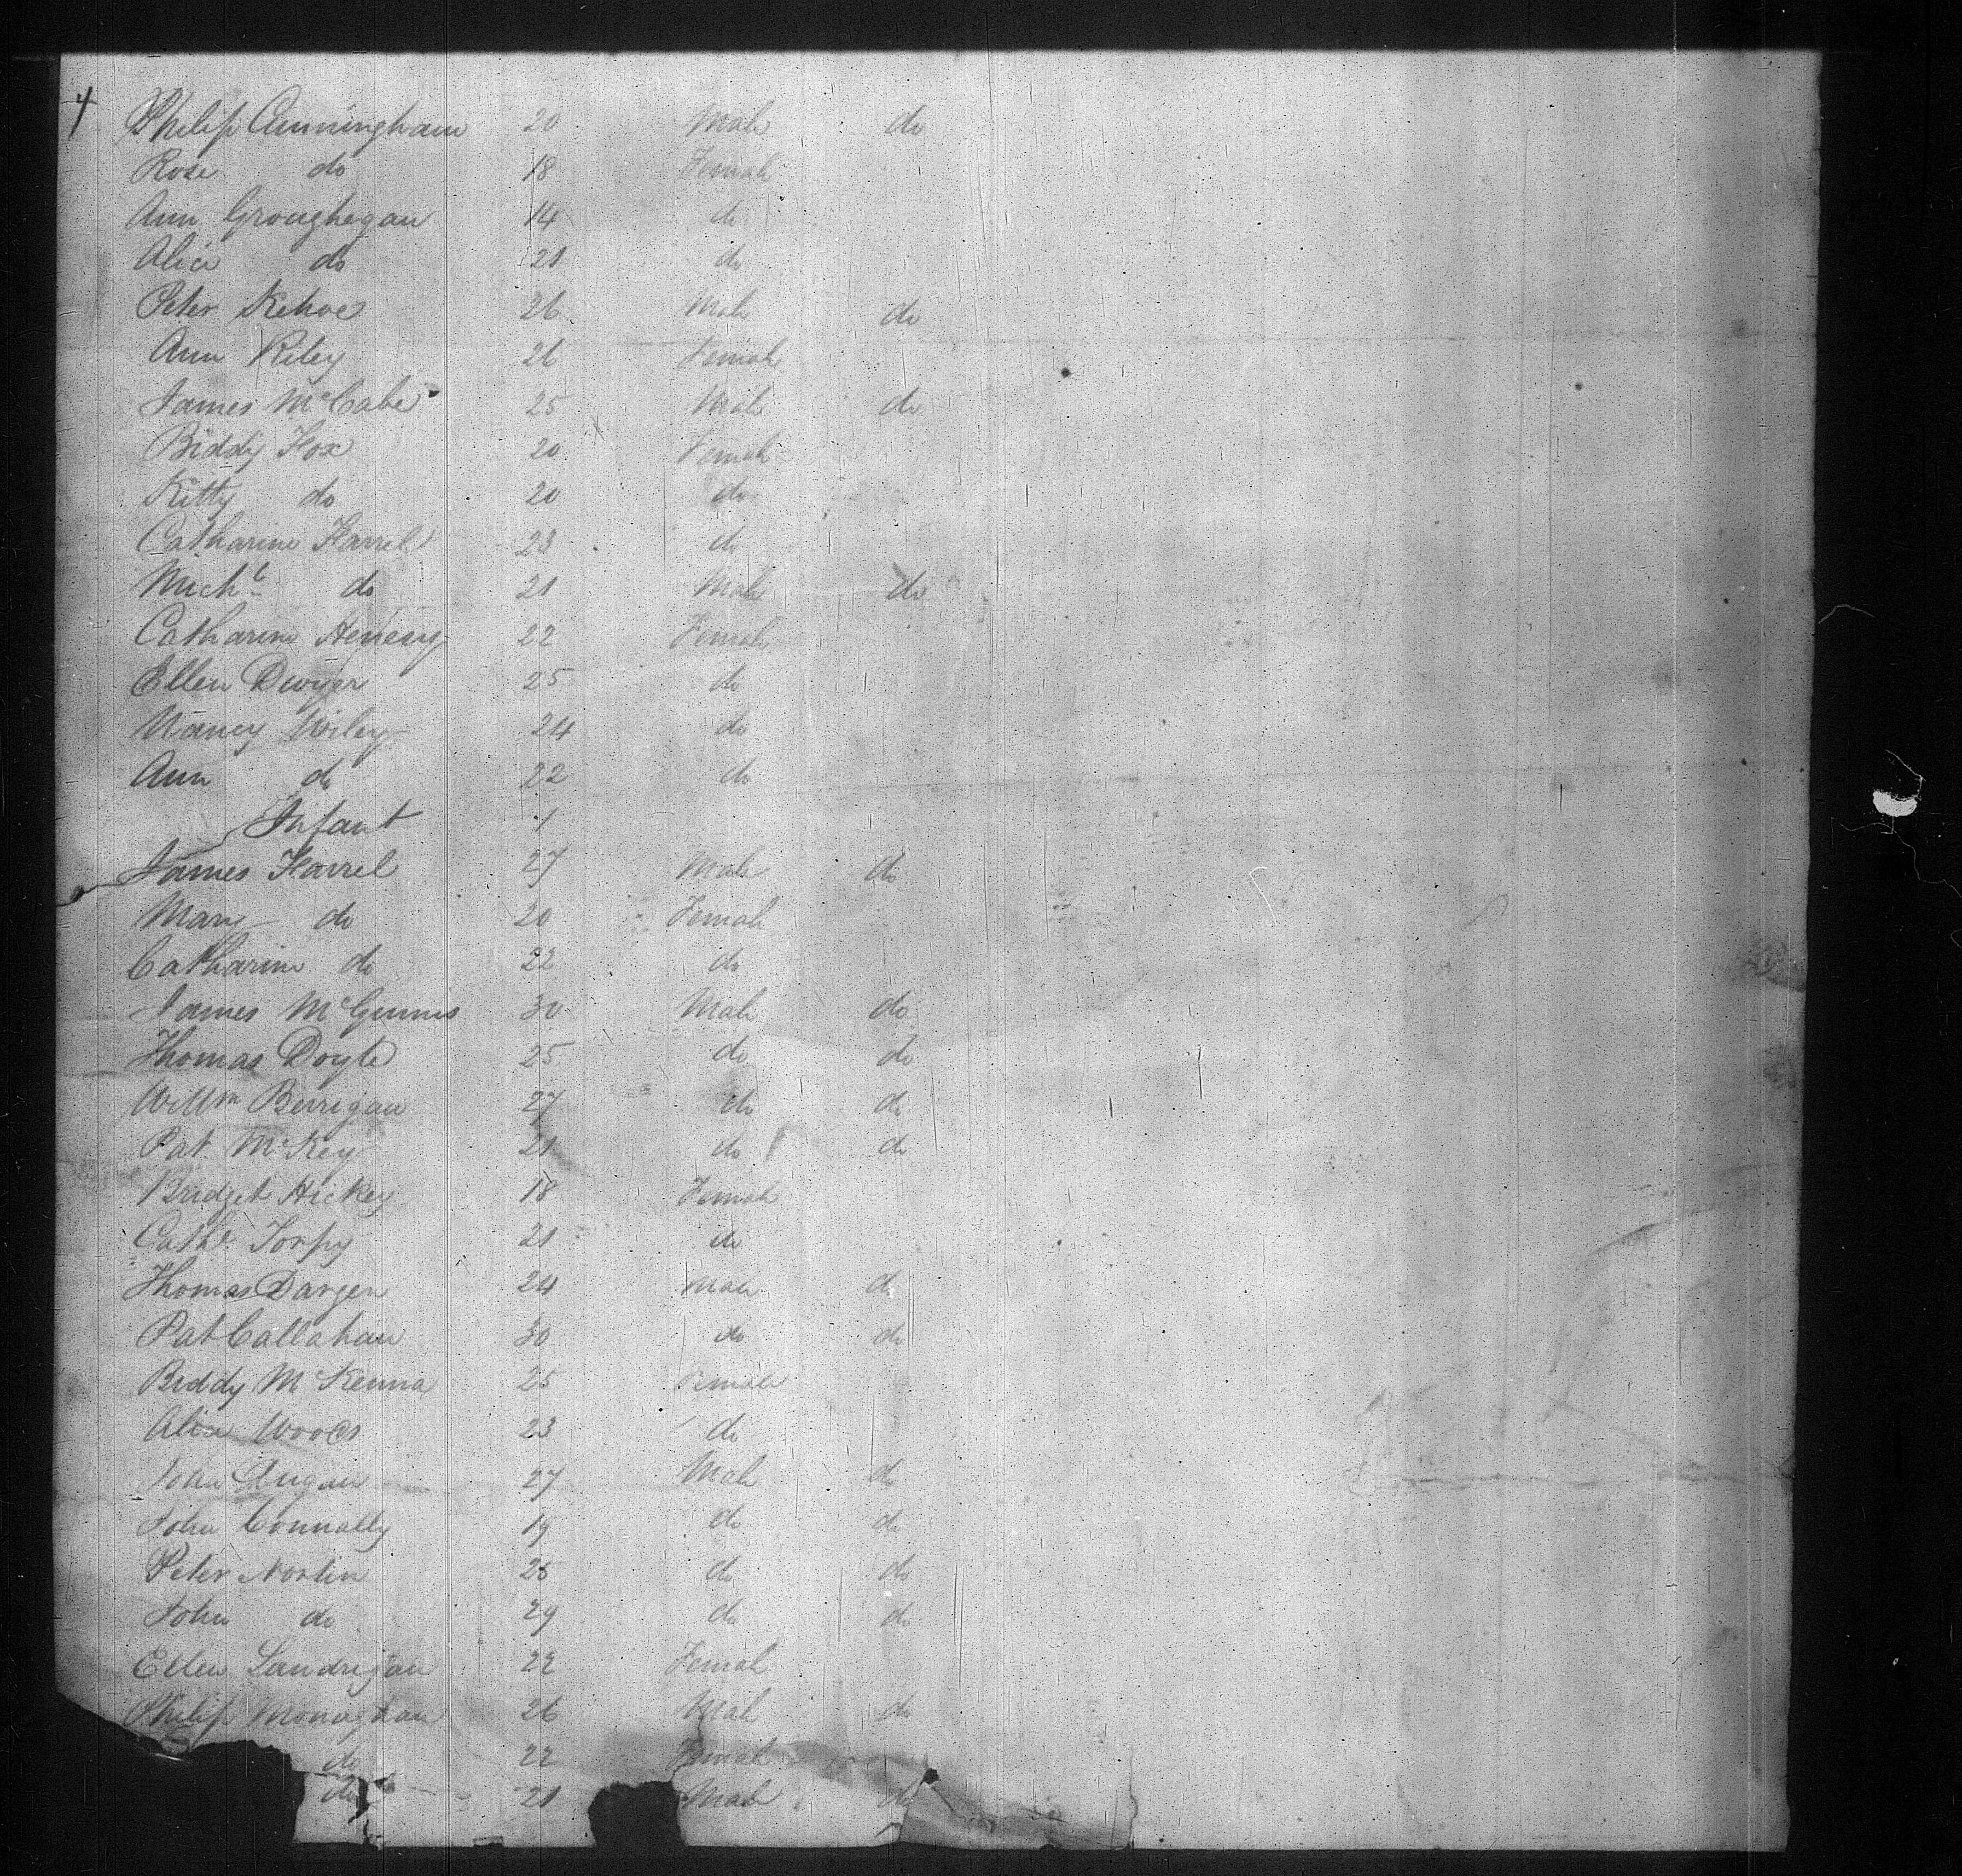 4
Philip Cunningham 20 Male do
Rose do 18 Female
Ann Groughegan 14 do
Alice do 21 do
Peter Kehoe 26 Male do
Ann Riley 26 Female
James McCabe 25 Male do
Biddy Fox 20 Female
Kitty do 20 do
Catharine Farrel 23 do
Michl do 21 Male do
Catharine Henesy 22 Female
Ellen Dwyer 25 do
Nancy Wiley 24 do
Ann do 22 do
Infant 1
James Farrel 27 Male do
Mary do 20 Female
Catharine do 22 do
James McGinnis 30 Male do
Thomas Doyle 25 do do
Willm Berrigan 27 do do
Pat McKey 21 do do
Bridget Hickey 18 Female
Cathe Torpy 21 do
Thomas Dargen 24 Male do
Pat Callahan 30 do do
Biddy McKenna 25 Female
Alice Woods 23 do
John 27 Male do
John Connally 19 do do
Peter Norlin 25 do do
John do 29 do do
Ellen Landrigan 22 Female
Philip Monaghan 26 Male do
do 22 Female
do 21 Male do